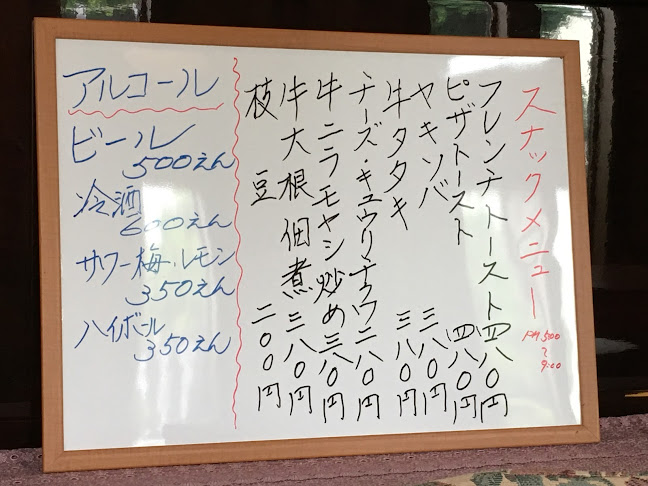 スナックメニュー
PM 5:00
〜
9:00
フレンチトースト 四八〇円
ピザトースト 四八〇円
ヤキソバ 三八〇円
牛タタキ 三八〇円
チーズ・キュウリ・チクワ 二八〇円
牛ニラモヤシ炒め 三八〇円
牛大根佃煮 三八〇円
枝豆 二〇〇円
アルコール
ビール
500えん
冷酒
600えん
サワー梅・レモン
350えん
ハイボール
350えん